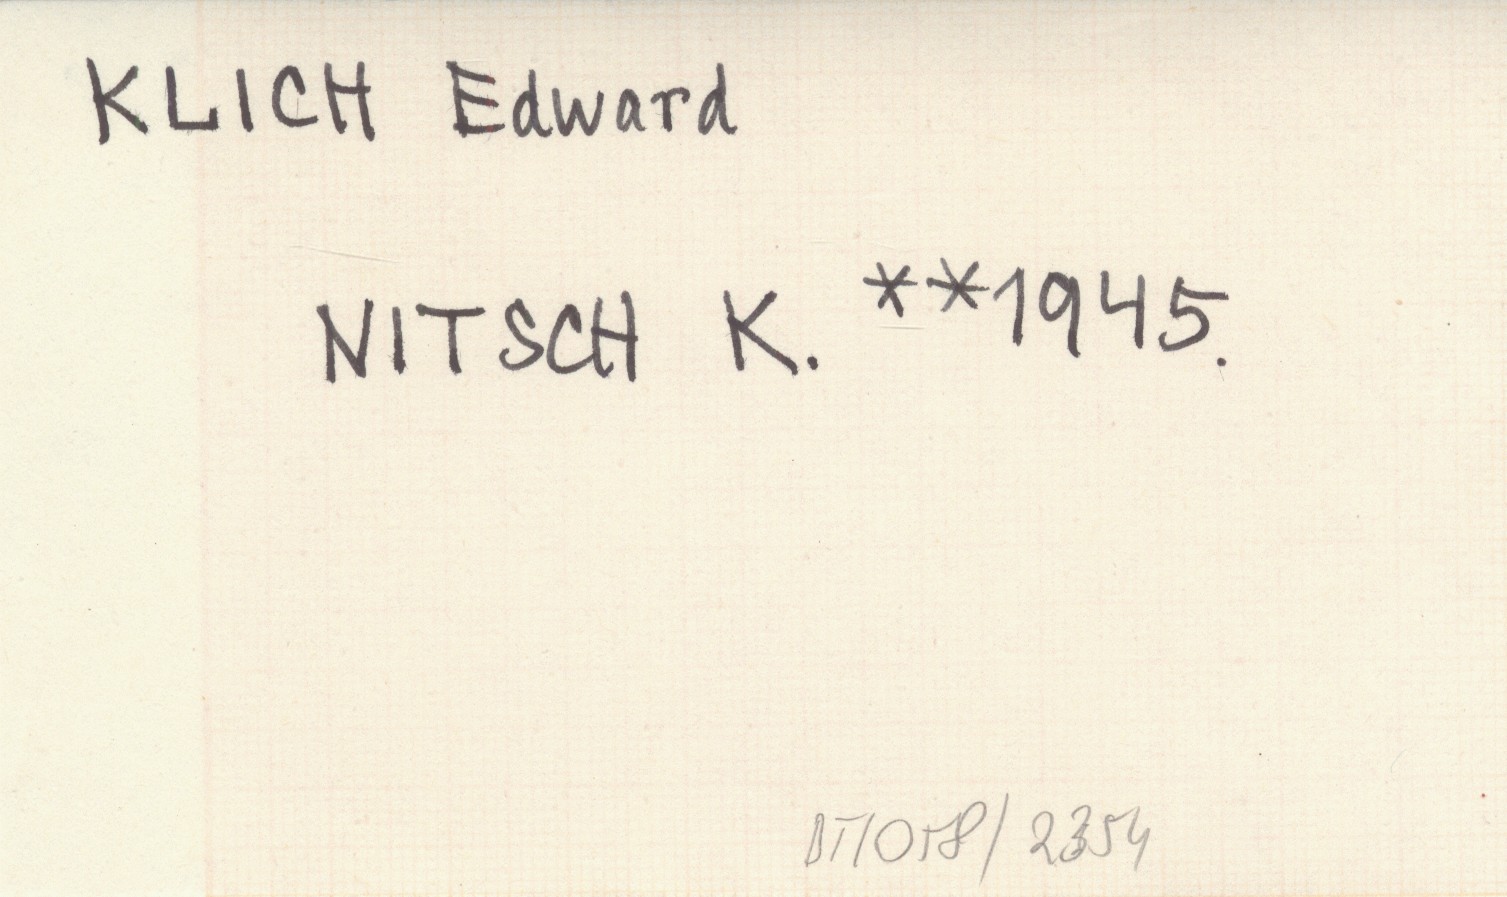 KLICH Edward
NITSCH K. **1945.
DT/058/2354